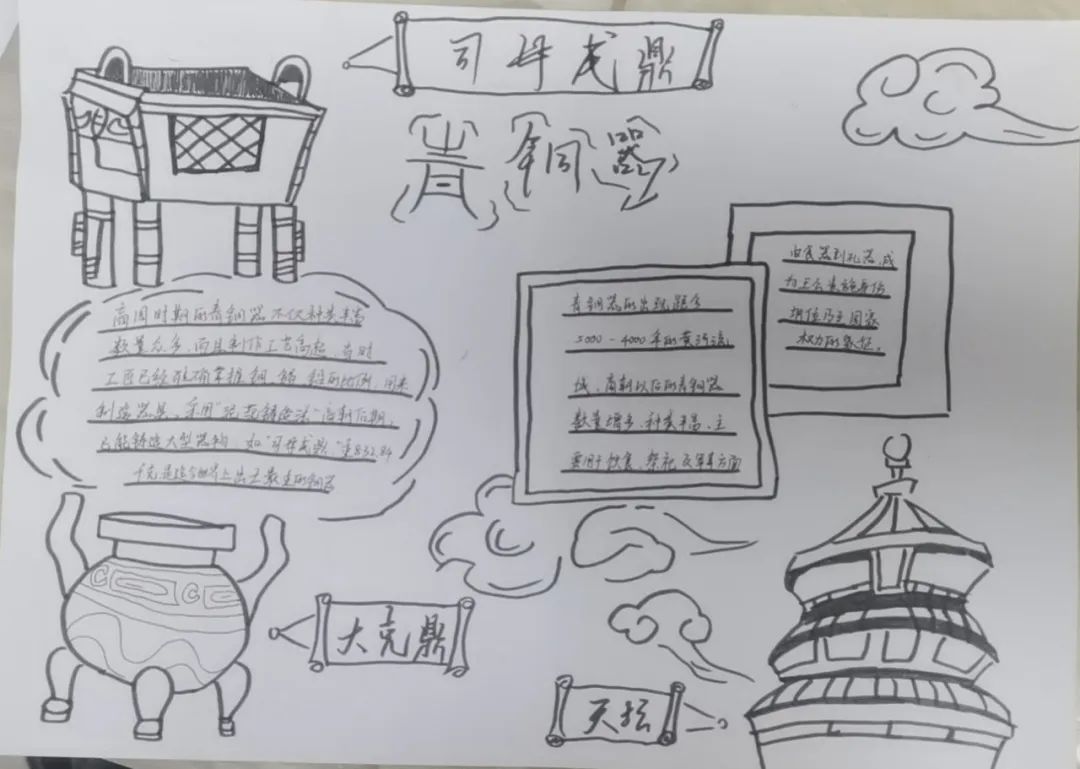 司母戊鼎
青铜器
商周时期的青铜器不仅种类丰富
数量众多,而且制作工艺高超,当时
工匠已经准确掌握铜、锡、铅的比例,用来
制造器具。采用"泥范铸造法"商朝后期,
已能铸造大型器物,如"司母戊鼎"重832.84
千克是迄今世界上出土最重的铜器
青铜器的出现距今
5000-4000年的黄河流
域,商朝以后的青铜器
数量增多,种类丰富,主
要用于饮食、祭祀及军事方面
由食器到礼器,成
为王公贵族身份
地位乃至国家
权力的象征。
大克鼎
天坛